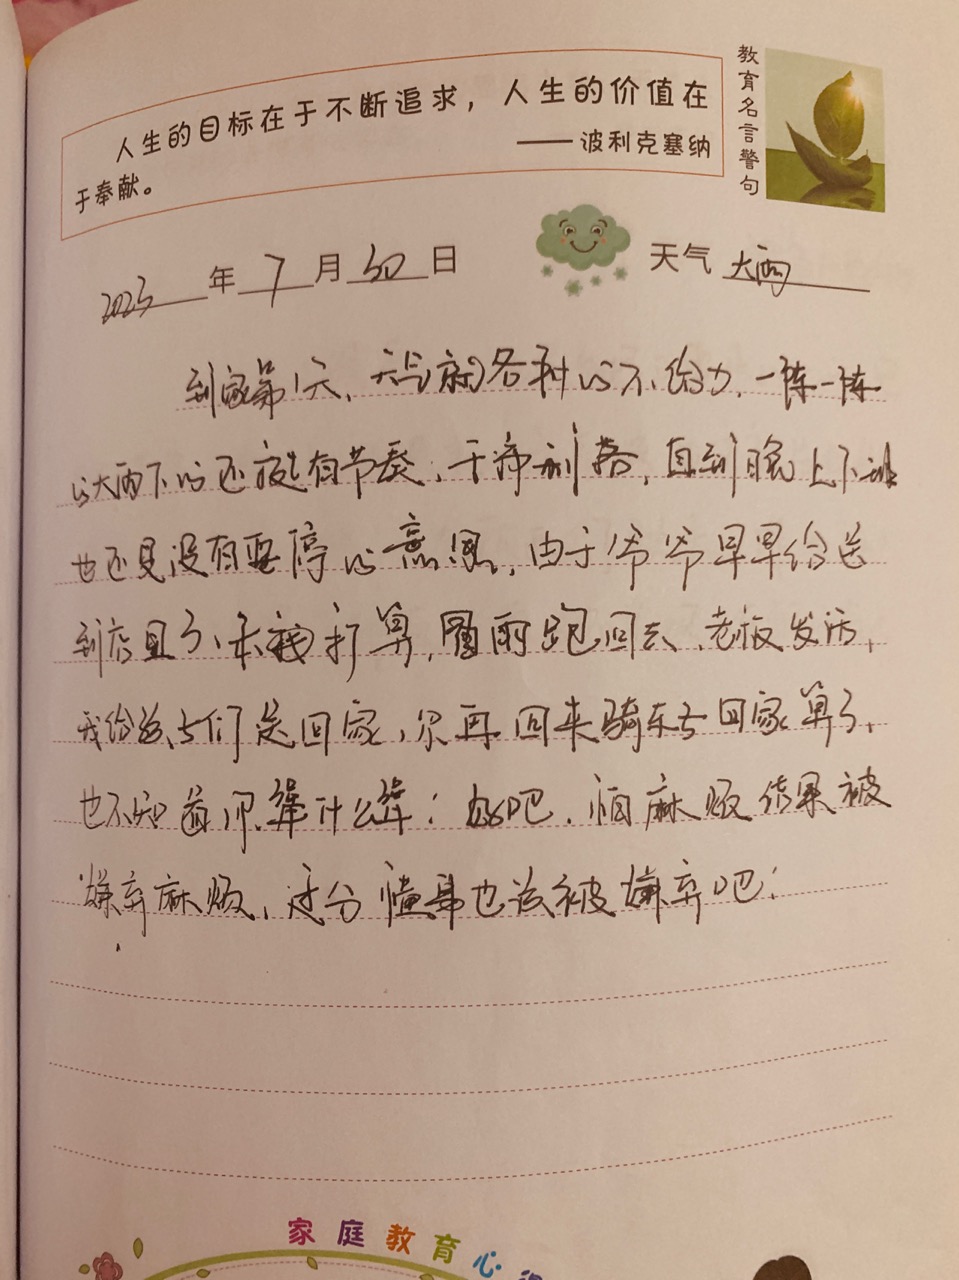 教育名言警句
人生的目标在于不断追求，人生的价值在
于奉献。
——波利克塞纳
2023年7月30日
天气 大雨
到家第1天、天气就各种的不给力，一阵一阵
的大雨下的还挺有节奏，干净利落，直到晚上下班
也还是没有要停的意思，由于爷爷早早给送
到店里了、本我打算，冒雨跑回去、老板发话，
我给送 们送回家，尔再回来骑车 回家算了，
也不知道 犟什么犟；好吧，怕麻烦结果被
嫌弃麻烦，过分懂事也该被嫌弃吧；
家庭教育心得